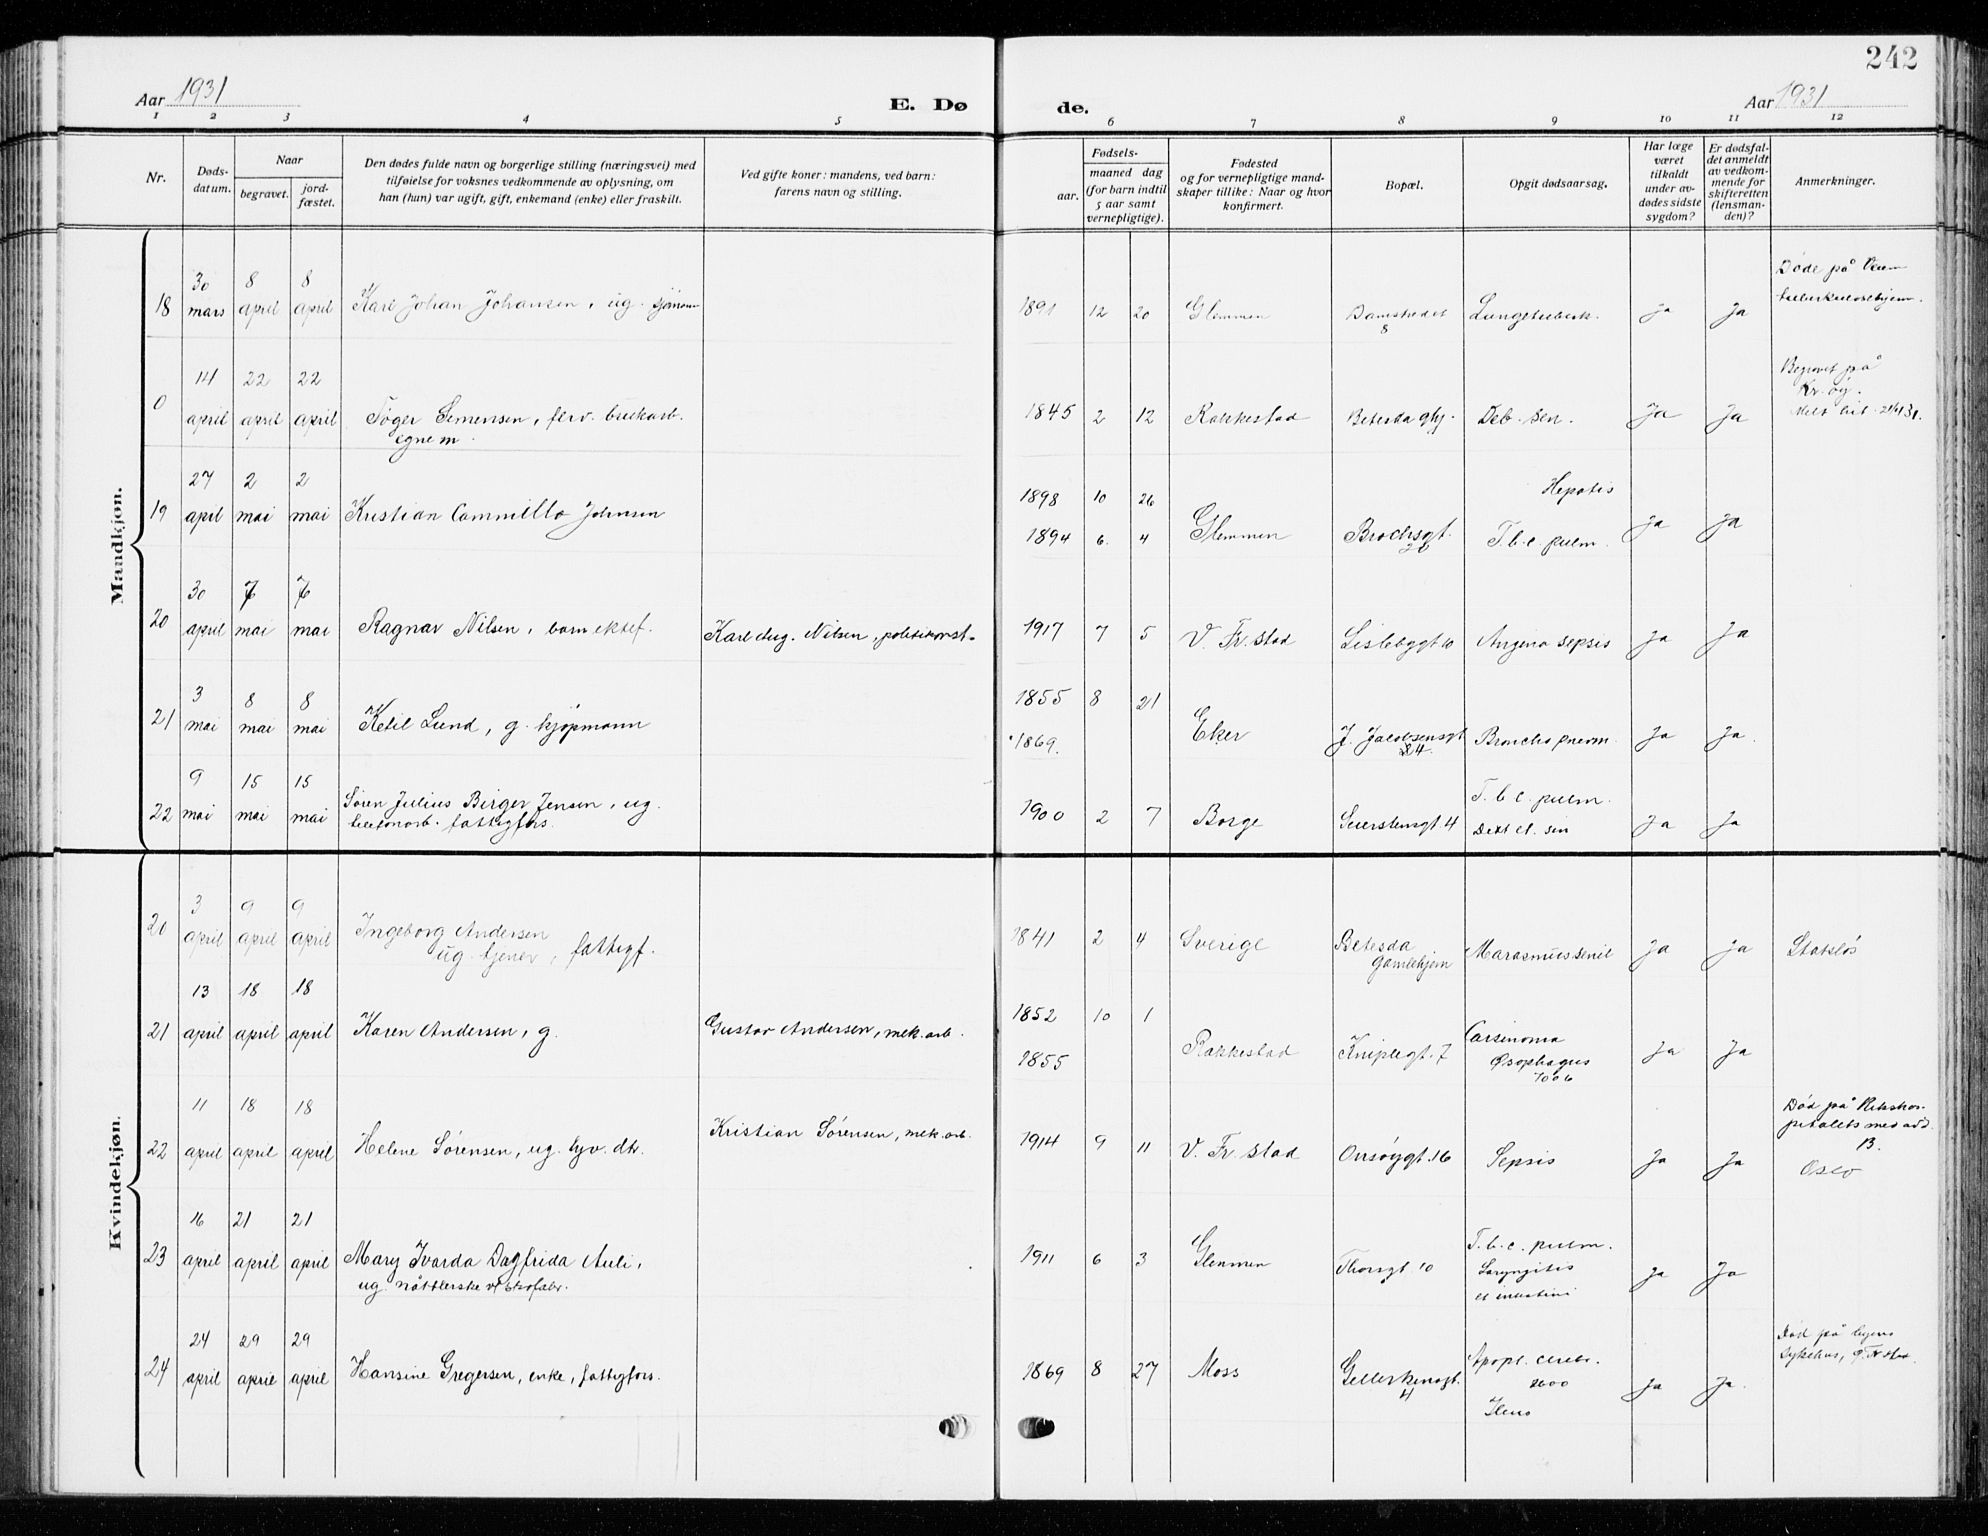 242
Aar 1931
E. Dø
de.
Aar 1931
1 2 3 4 5 6 7 8 9 10 11 12
Nr.
Døds-
datum.
Naar
begravet.
jord-
fæstet.
Den dødes fulde navn og borgerlige stilling (næringsvei) med
tilføielse for voksnes vedkommende av oplysning, om
han (hun) var ugift, gift, enkemand (enke) eller fraskilt.
Ved gifte koner: mandens, ved barn:
farens navn og stilling.
Fødsels-
aar.
maaned dag
(for barn indtil
5 aar samt
vernepligtige).
Fødested
og for vernepligtige mand-
skaper tillike: Naar og hvor
konfirmert.
Bopæl.
Opgit dødsaarsag.
Har læge
været
tilkaldt
under av-
dødes sidste
sygdom?
Er dødsfal-
det anmeldt
av vedkom-
mende for
skifteretten
(lensman-
den)?
Anmerkninger.
Mandkjøn.
18 30 mars 8 april 8 april Karl Johan Johansen, ug. sjømann 1891 12 20 Glemmen Damstredet 8 Lungetuberk. ja ja Døde på
tuberkulosehjem.
0 14 april 22 april 22 april Tøger Simensen, ferv. brukarb.
egne m 1845 2 12 Rakkestad Betesda glhj. Deb. sen. Ja Ja Begravet på
Kr. øy.
19 27 april 2 mai 2 mai Kristian Cammillo Johnsen 1898 10 26 Hepatis
1894 6. 4 Glemmen Brochsgt. T.b.c. pulm. ja ja
20 30 april 7 mai 7 mai Ragnar Nilsen, barn ektef. Karl Aug. Nilsen, politikonst. 1917 7 5 V. Fr.stad Lislebygt 10 Angina sepsis Ja Ja
21 3 mai 8 mai 8 mai Ketil Lund, g. kjøpmann 1855 8 21
1869. Eker J. Jacobsensgt 24. Broncho pneum. Ja Ja.
22 9 mai 15 mai 15 mai Søren Julius Birger Jensen, ug.
betonarb. fattigfors. 1900 2 7 Borge Seierstensgt. 4 T.b.c. pulm.
Dext et. sin Ja Ja
Kvindekjøn.
20 3 april 9 april 9 april Ingeborg Andersen
ug. tjener, fattigf. 1841 2 4 Sverige Betesda
Gamlehjem Marasmus senil Ja Ja Statsløs
21 13 april 18 april 18 april Karen Andersen, g. Gustav Andersen, mek.arb. 1852 10 1
1855 Rakkestad Kniplegt. 7 Carsinoma
Øsophagus Ja Ja
22 11 april 18 april 18 april Helene Sørensen, ug. hjv. dtr. Kristian Sørensen, mek.arb. 1914 9 11 V. Fr.stad Onsøygt. 16 Sepsis Ja Ja Død på Rikshos-
pitalets med avd.
B.
Oslo
23 16 april 21 april 21 april Mary Ivarda Dagfrida Auli,
ug. nåtlerske v/ skofabr. 1911 6 3 Glemmen Thorsgt. 10 T.b.c. pulm.
Laryngitis
et intestini ja Ja
24 24 april 29 april 29 april Hansine Gregersen, enke, fattigfors. 1869 8 27 Moss Gellerkensgt.
4 Apopl. cerebr.
Ileus Ja Ja. Død på byens
sykehus, Fr.stad.